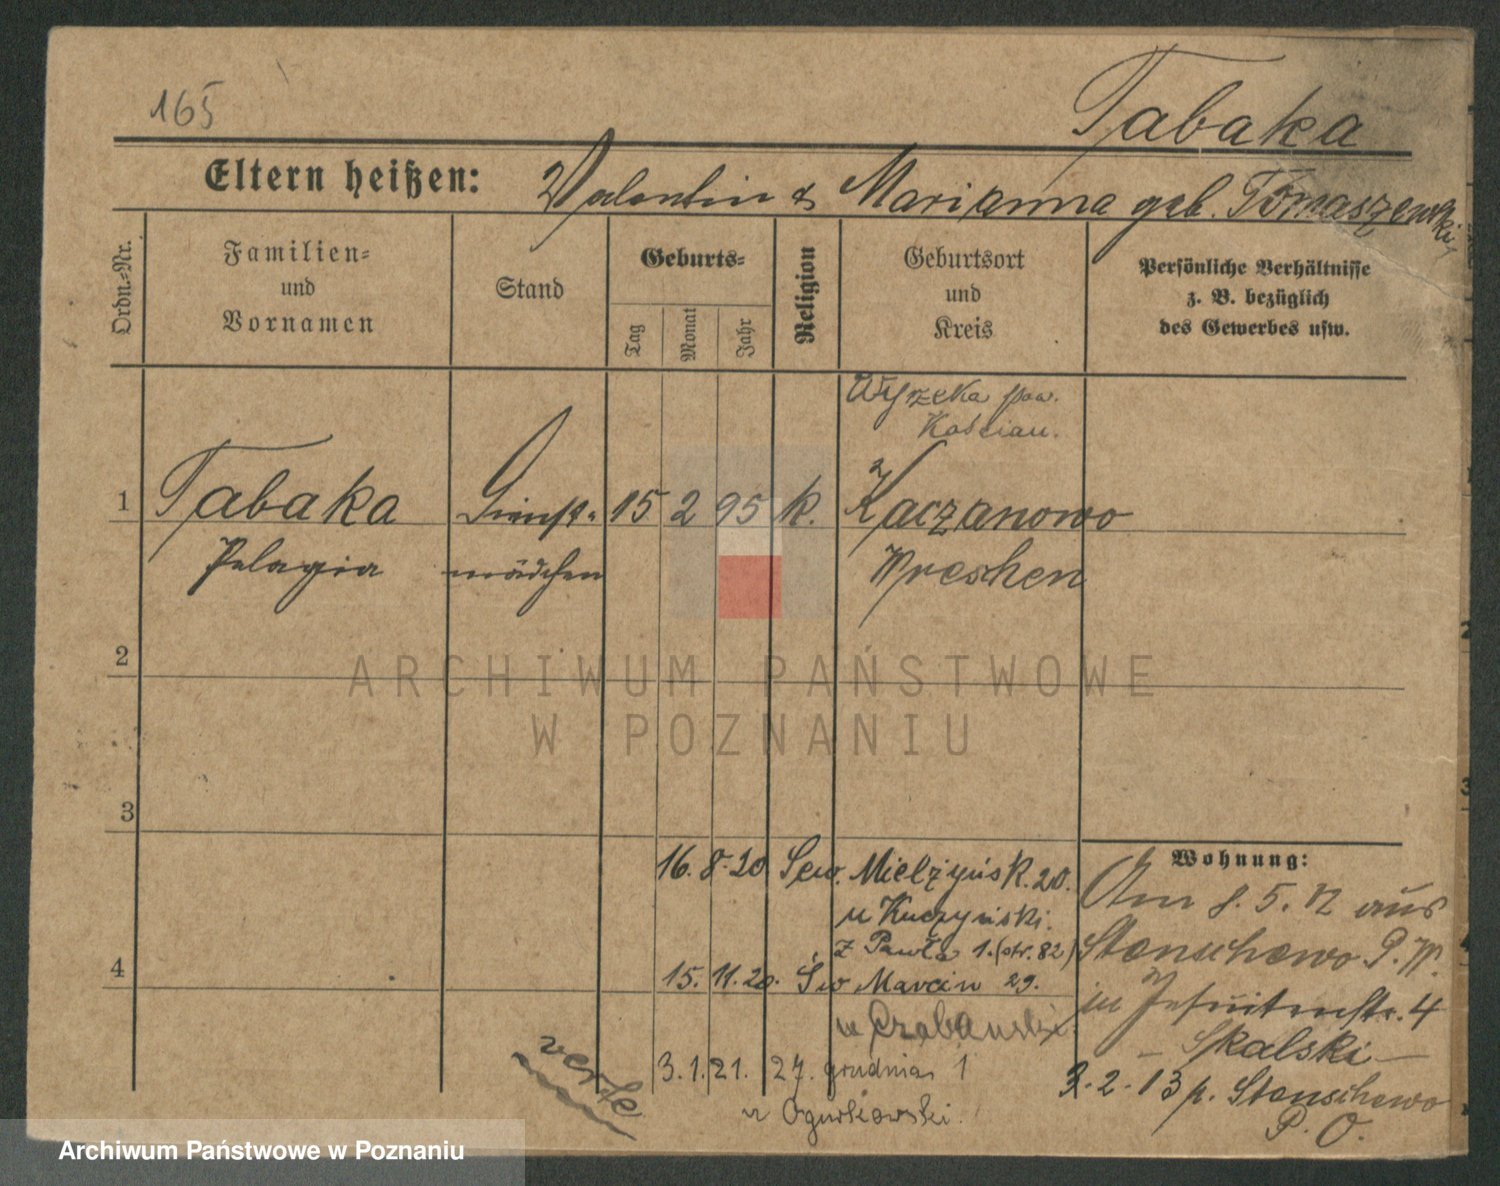 165
Tabaka
Eltern heißen: Valentin & Marianna geb. Tomaszewski
Ordn.-Nr.
Familien- und Vornamen
Stand
Geburts-
Tag
Monat
Jahr
Religion
Geburtsort und Kreis
Persönliche Verhältnisse z. B. bezüglich des Gewerbes usw.
Wyrzeka pow.
Kościan.
1 Tabaka Dienst- 15 2 95 k. Kaczanowo
Pelagia mädchen Wreschen
2
3
4
Wohnung:
16. 8. 20 Sew. Mielżyńsk. 20.
u Kuczyński.
z Pawła 1. (str. 82)
15. 11. 20. Św Marcin 29.
u
3. 1. 21. 27. grudnia 1
u Ogurkowski.
verte
Am 8. 5. 12 aus
Stenschewo P. W.
in Jesuitenstr. 4
— Skalski —
3. 2. 13 p. Stenschewo
P. O.
ARCHIWUM PAŃSTWOWE
W POZNANIU
Archiwum Państwowe w Poznaniu